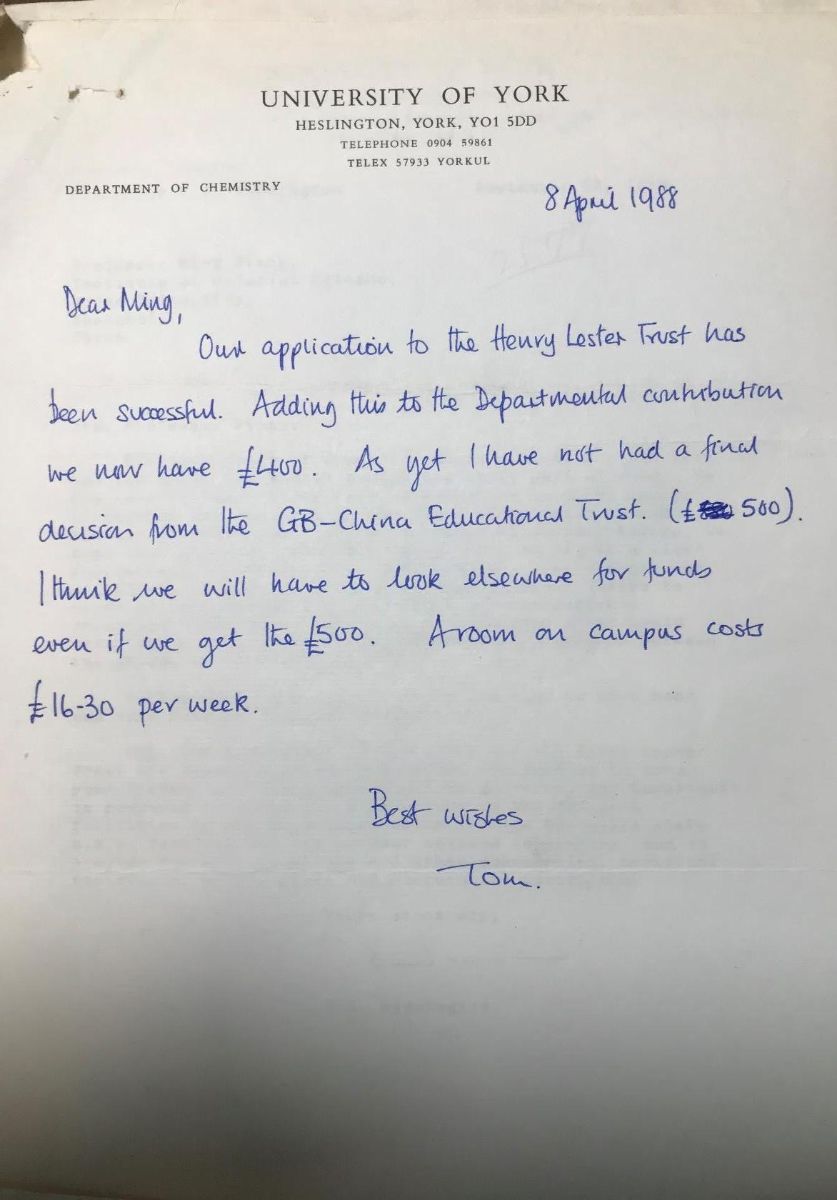 UNIVERSITY OF YORK
HESLINGTON, YORK, YO1 5DD
TELEPHONE 0904 59861
TELEX 57933 YORKUL
DEPARTMENT OF CHEMISTRY
8 April 1988
Dear Ming,
Our application to the Henry Lester Trust has
been successful. Adding this to the Departmental contribution
we now have £400. As yet I have not had a final
decision from the GB-China Educational Trust. (£ 500).
I think we will have to look elsewhere for funds
even if we get the £500. A room on campus costs
£16-30 per week.
Best wishes
Tom.